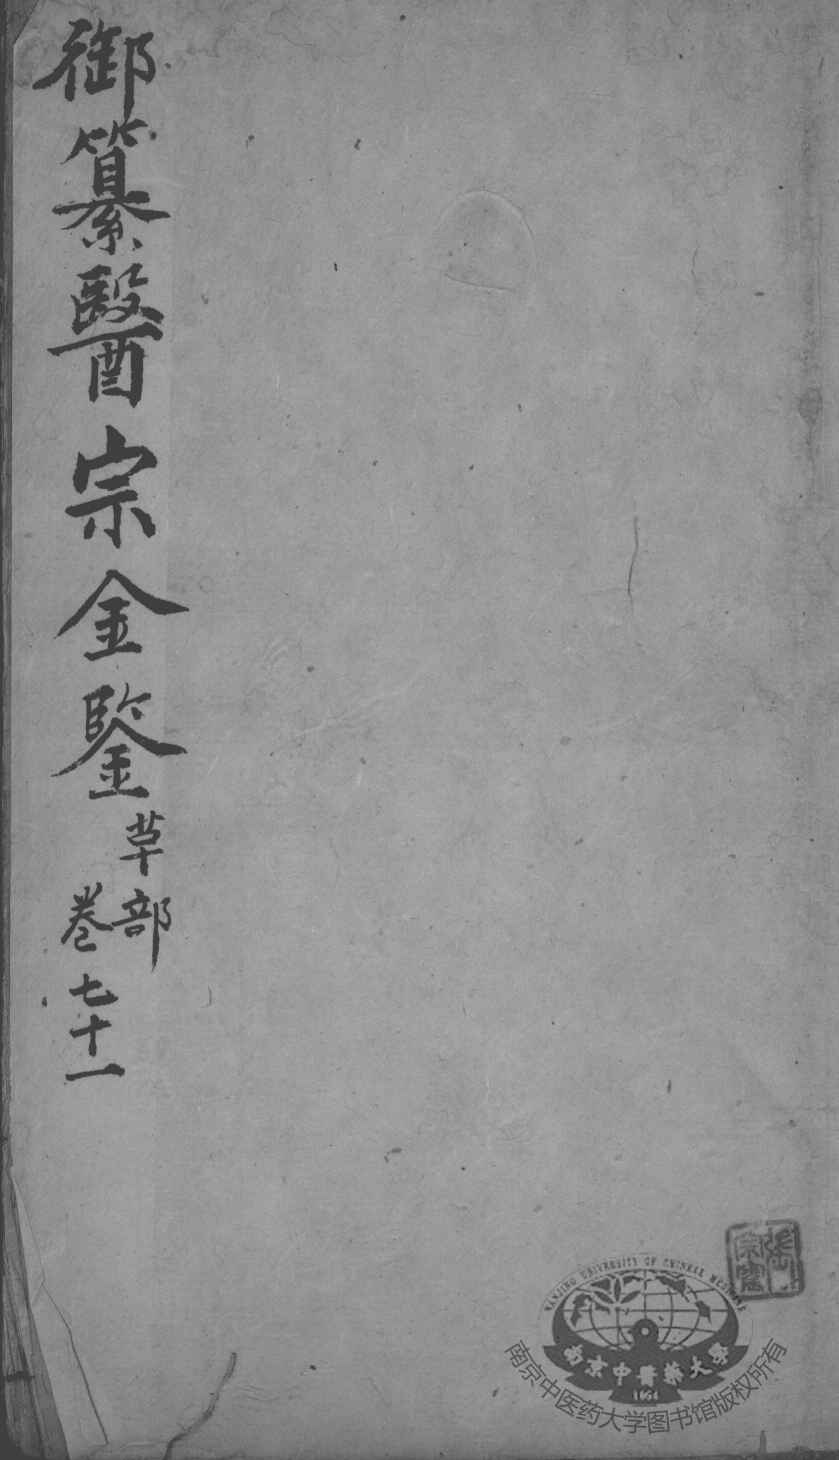 御纂醫宗金鑒
草部
卷七十一
NANJING UNIVERSITY OF CHINESE MEDICINE
南京中醫藥大學
1954
南京中医药大学图书馆版权所有